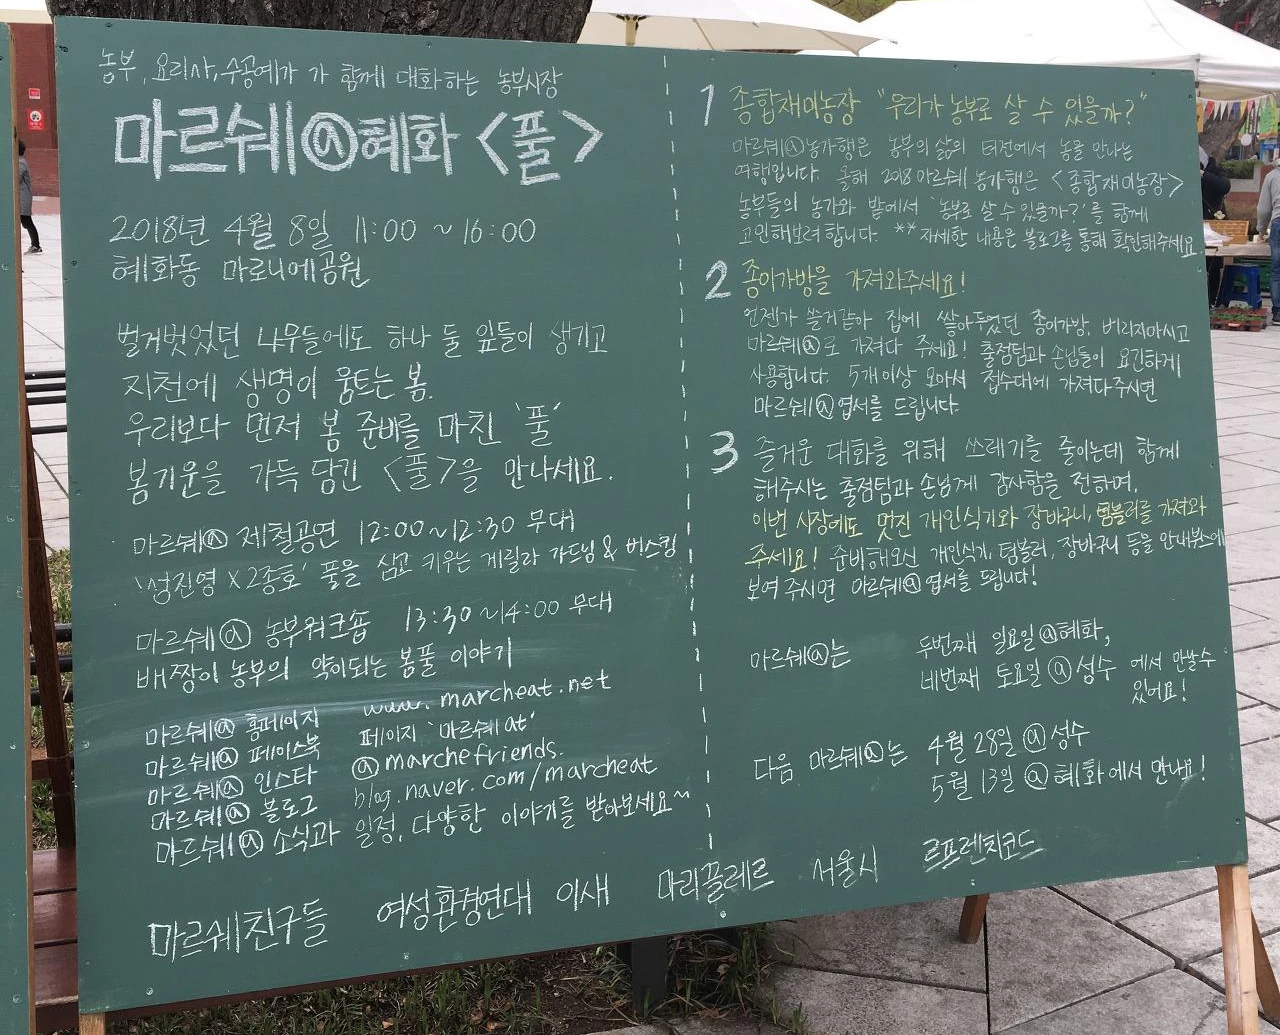 농부, 요리사, 수공예가 가 함께 대화하는 농부시장
마르쉐@혜화 <풀>
2018년 4월 8일 11:00 ~ 16:00
혜화동 마로니에공원
벌거벗었던 나무들에도 하나 둘 잎들이 생기고
지천에 생명이 움트는 봄.
우리보다 먼저 봄 준비를 마친 '풀'
봄기운을 가득 담긴 <풀>을 만나세요.
마르쉐@ 제철공연 12:00~12:30 무대
'성진영 X 2종호' 풀을 심고 키우는 게릴라 가드닝 & 버스킹
마르쉐@ 농부워크숍 13:30 ~14:00 무대
배짱이 농부의 약이되는 봄풀 이야기
마르쉐@ 홈페이지 www.marcheat.net
마르쉐@ 페이스북 페이지 '마르쉐at'
마르쉐@ 인스타 @marchefriends.
마르쉐@ 블로그 blog.naver.com/marcheat
마르쉐@ 소식과 일정, 다양한 이야기를 받아보세요~
1 종합재미농장 "우리가 농부로 살 수 있을까?"
마르쉐@농가행은 농부의 삶의 터전에서 농을 만나는
여행입니다. 올해 2018 마르쉐 농가행은 <종합재미농장>
농부들의 농가와 밭에서 '농부로 살 수 있을까?'를 함께
고민해보려 합니다. **자세한 내용은 블로그를 통해 확인해주세요
2 종이가방을 가져와주세요!
언젠가 쓸거같아 집에 쌓아두었던 종이가방, 버리지마시고
마르쉐@로 가져다 주세요! 출점팀과 손님들이 요긴하게
사용합니다. 5개이상 모아서 접수대에 가져다주시면
마르쉐@엽서를 드립니다.
3 즐거운 대화를 위해 쓰레기를 줄이는데 함께
해주시는 출점팀과 손님께 감사함을 전하며,
이번 시장에도 멋진 개인식기와 장바구니, 텀블러를 가져와
주세요! 준비해오신 개인식기, 텀블러, 장바구니 등을 안내부스에
보여 주시면 마르쉐@엽서를 드립니다!
마르쉐@는 두번째 일요일 @혜화,
네번째 토요일 @성수 에서 만날수
있어요!
다음 마르쉐@는 4월 28일 @성수
5월 13일 @혜화에서 만나요!
마르쉐친구들 여성환경연대 이새 마리끌레르 서울시 르프렌치코드